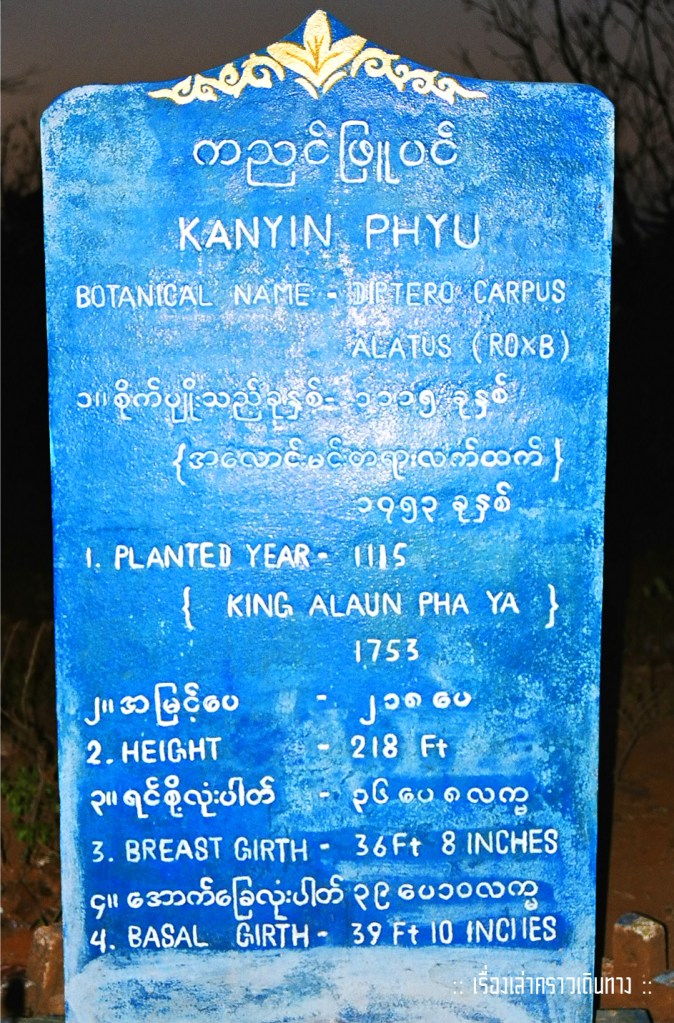 ကညင်ဖြူပင်
KANYIN PHYU
BOTANICAL NAME - DIPTERO CARPUS
ALATUS (ROXB)
၁။ စိုက်ပျိုးသည့်ခုနှစ် - ၁၁၁၅ ခုနှစ်
{အလောင်းမင်တရားလက်ထက်}
၁၇၅၃ ခုနှစ်
1. PLANTED YEAR - 1115
{ KING ALAUN PHA YA }
1753
၂။ အမြင့်ပေ - ၂၁၈ ပေ
2. HEIGHT - 218 Ft
၃။ ရင်စို့လုံးပါတ် - ၃၆ ပေ ၈ လက္မ
3. BREAST GIRTH - 36 Ft 8 INCHES
၄။ အောက်ခြေလုံးပါတ် ၃၉ ပေ ၁၀ လက္မ
4. BASAL GIRTH - 39 Ft 10 INCHES
:: เรื่องเล่าคราวเดินทาง ::